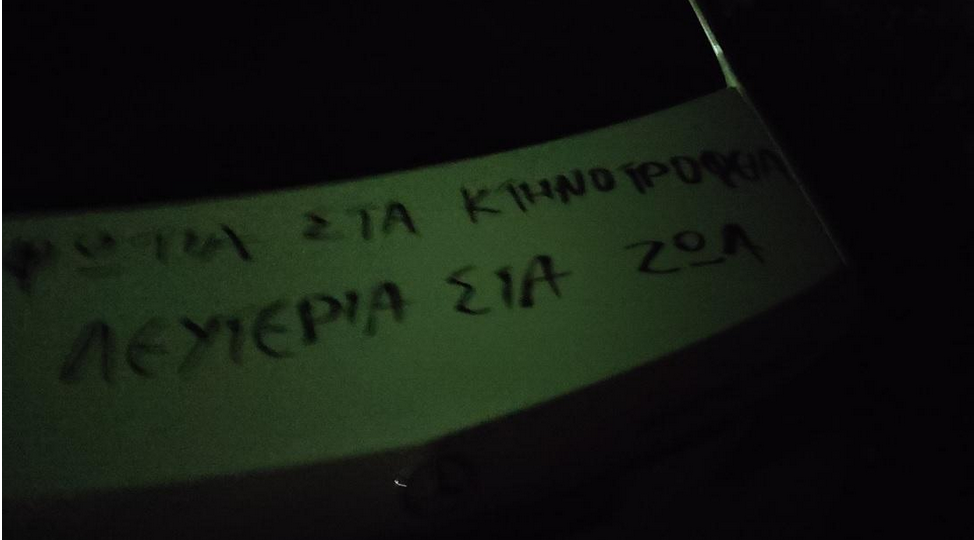 ΦΩΤΙΑ ΣΤΑ ΚΤΗΝΟΤΡΟΦΕΙΑ
ΛΕΥΤΕΡΙΑ ΣΤΑ ΖΩΑ